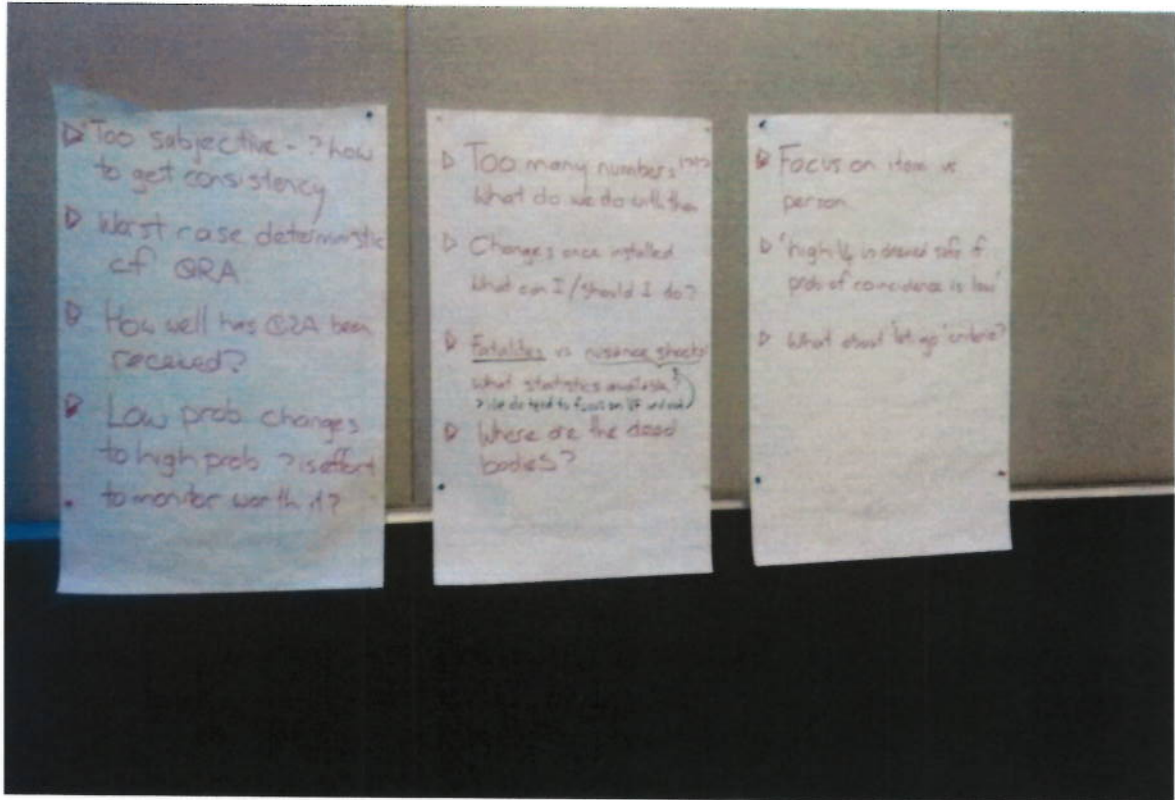 Too subjective - ? how
to get consistency
Worst case deterministic
cf QRA
How well has QRA been
received?
Low prob changes
to high prob ? is effort
to monitor worth it?
Too many numbers
What do we do with them
Changes once installed
What can I / should I do?
Fatalities vs nuisance shocks
What statistics available?
> we do tend to focus on VF
Where are the dead
bodies?
Focus on item vs
person
'high is deemed safe if
prob of coincidence is low'
What about 'let go' criteria?